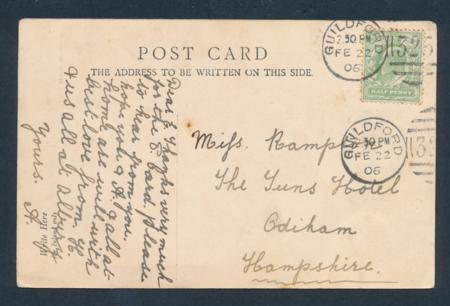 POST CARD
THE ADDRESS TO BE WRITTEN ON THIS SIDE.
GUILDFORD
2.30 PM
FE 22
06
HALF PENNY
GUILDFORD
2.30 PM
FE 22
06
Miss. Kamp
The Suns Hotel
Odiham
Hampshire.
Dear E Thanks very much
for the P. Card. Please
to hear from you
hope you & A. & all at
home are well with
best love from
& us all at
Yours.
A.